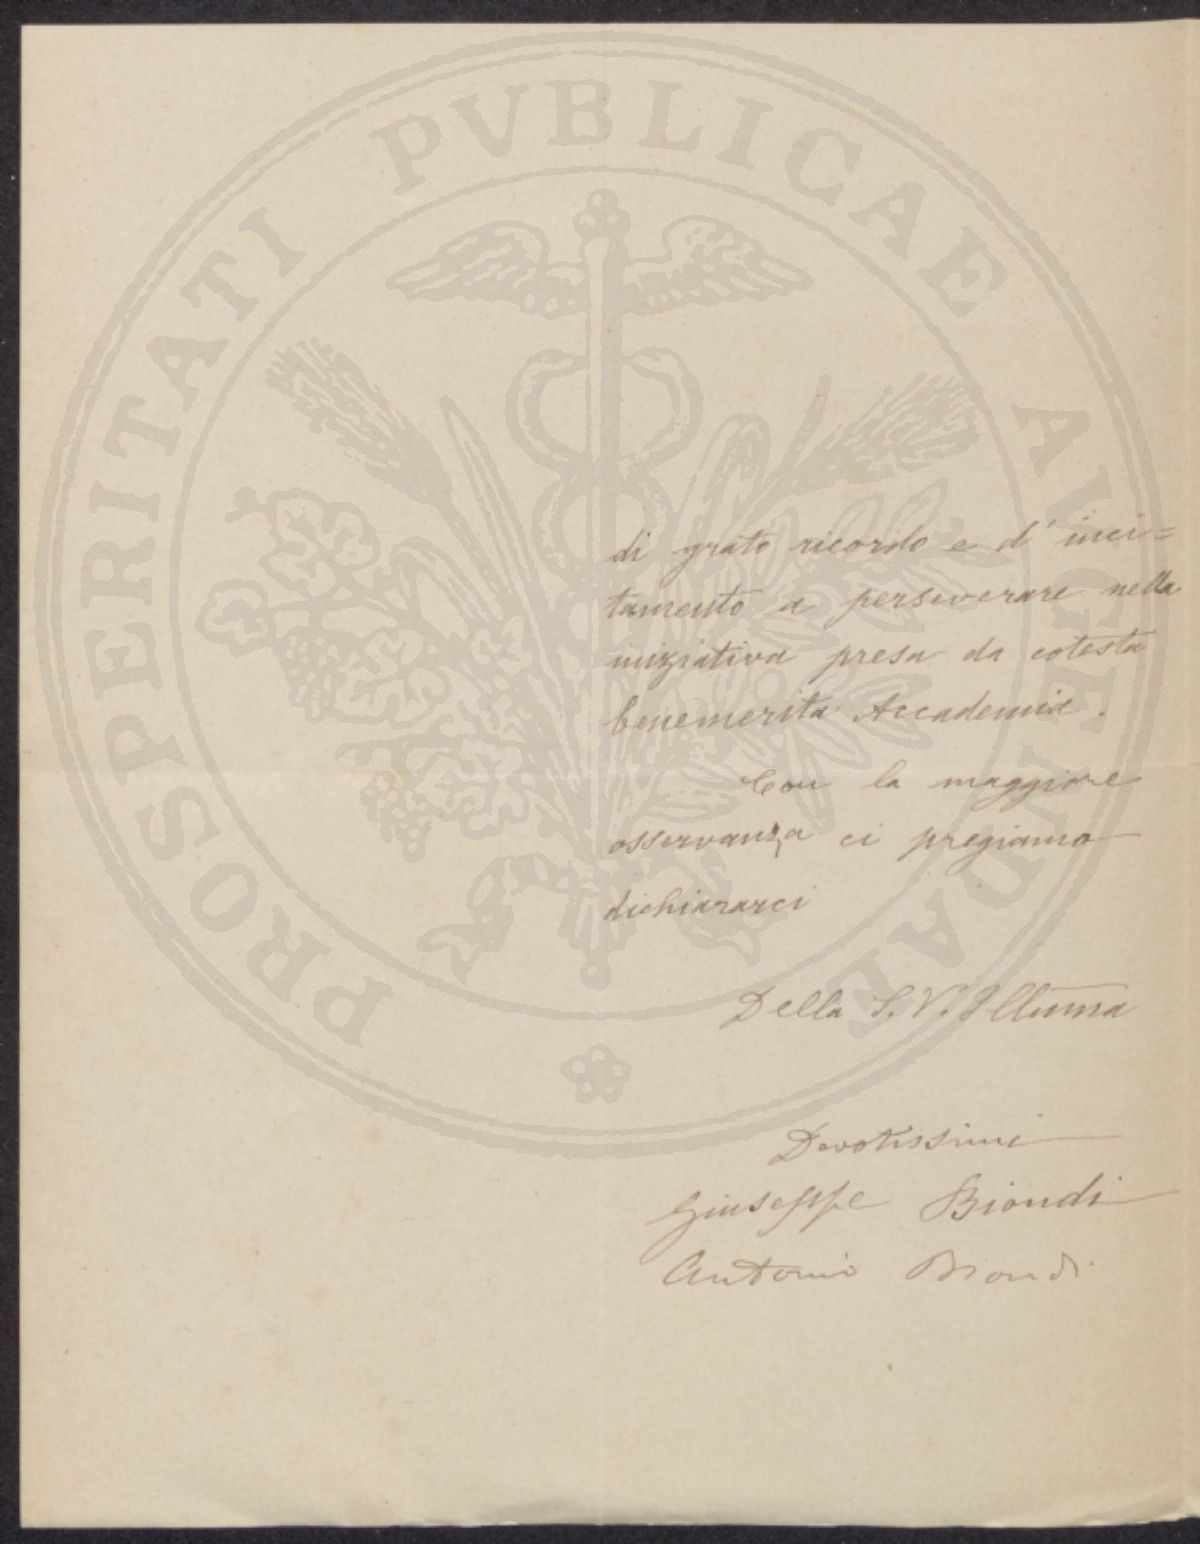 PROSPERITATI PVBLICAE AVGENDAE
di grato ricordo e d'inci=
tamento a perseverare nella
iniziativa presa da cotesta
benemerita Accademia.
Con la maggiore
osservanza ci pregiamo
dichiararci
Della S. V. Illuma
Devotissimi
Giuseppe Biondi
Antonio Biondi